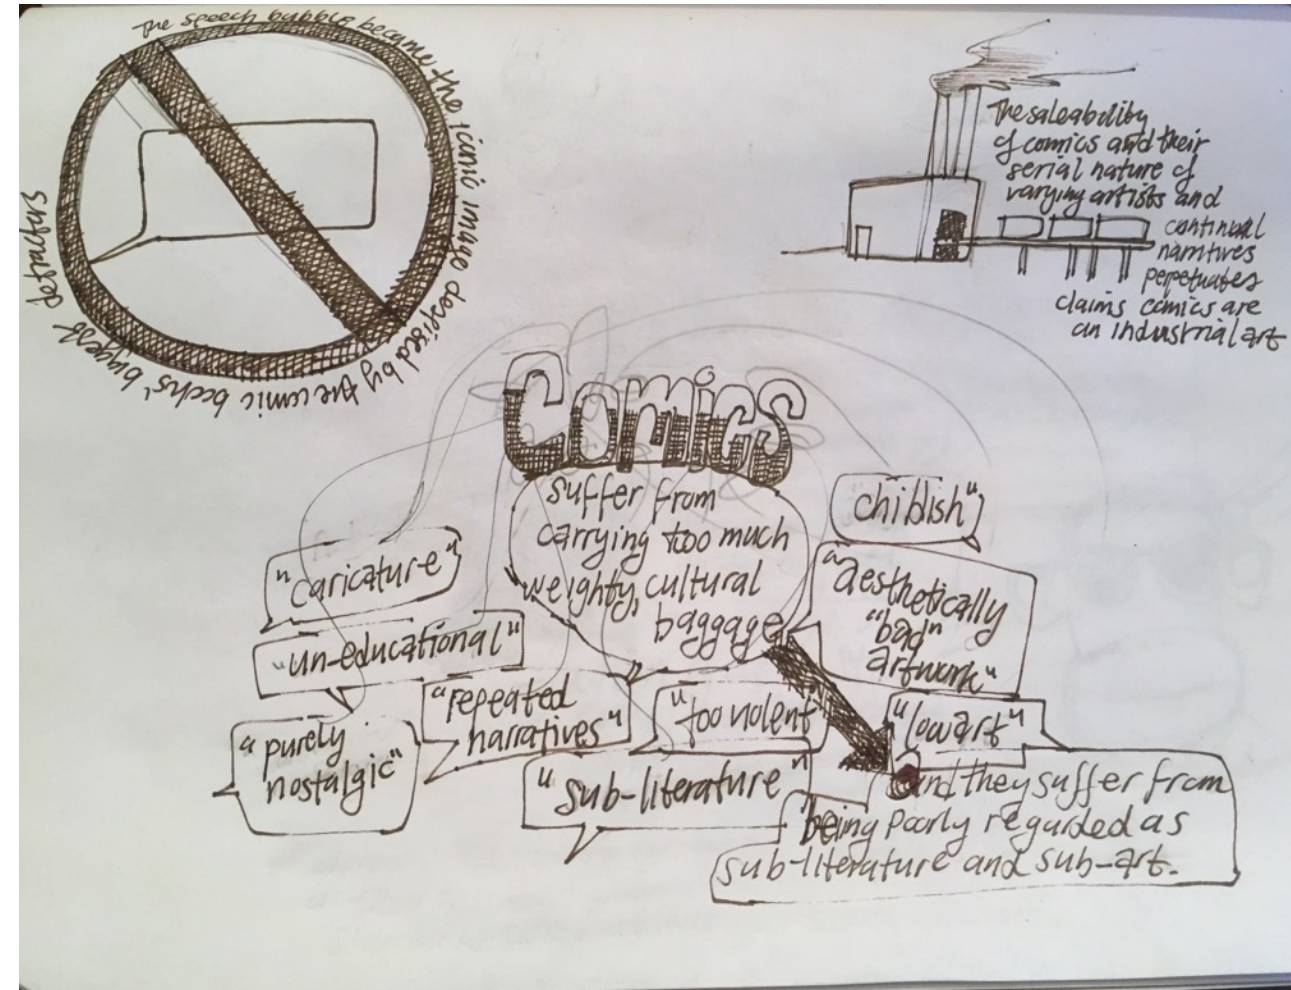 The speech bubble became the iconic image despised by the comic books' biggest detractors
The saleability
of comics and their
serial nature of
varying artists and
continual
narritives
perpetuates
claims comics are
an industrial art
Comics
suffer from
carrying too much
weighty, cultural
baggage
childish"
"caricature"
"aesthetically
"bad"
artwork"
"un-educational"
"repeated
narratives"
"too violent"
"low art"
"purely
nostalgic"
"sub-literature"
and they suffer from
being poorly regarded as
sub-literature and sub-art.